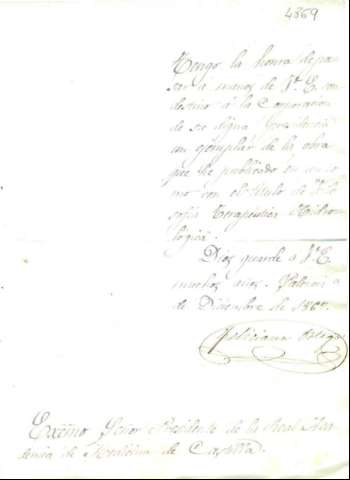 4369
Tengo la honra de pa
sar á manos de V. E. con
destino á la Corporacion
de su digna Presidencia
un ejemplar de la obra
que he publicado en un to
mo con el titulo de Filo
sofia Terapéutica Hidro
logica.
Dios guarde á V. E.
muchos años.
de Diciembre de
Feliciano
Excmo Señor Presidente de la Real Aca
demia de Medicina de Castilla.